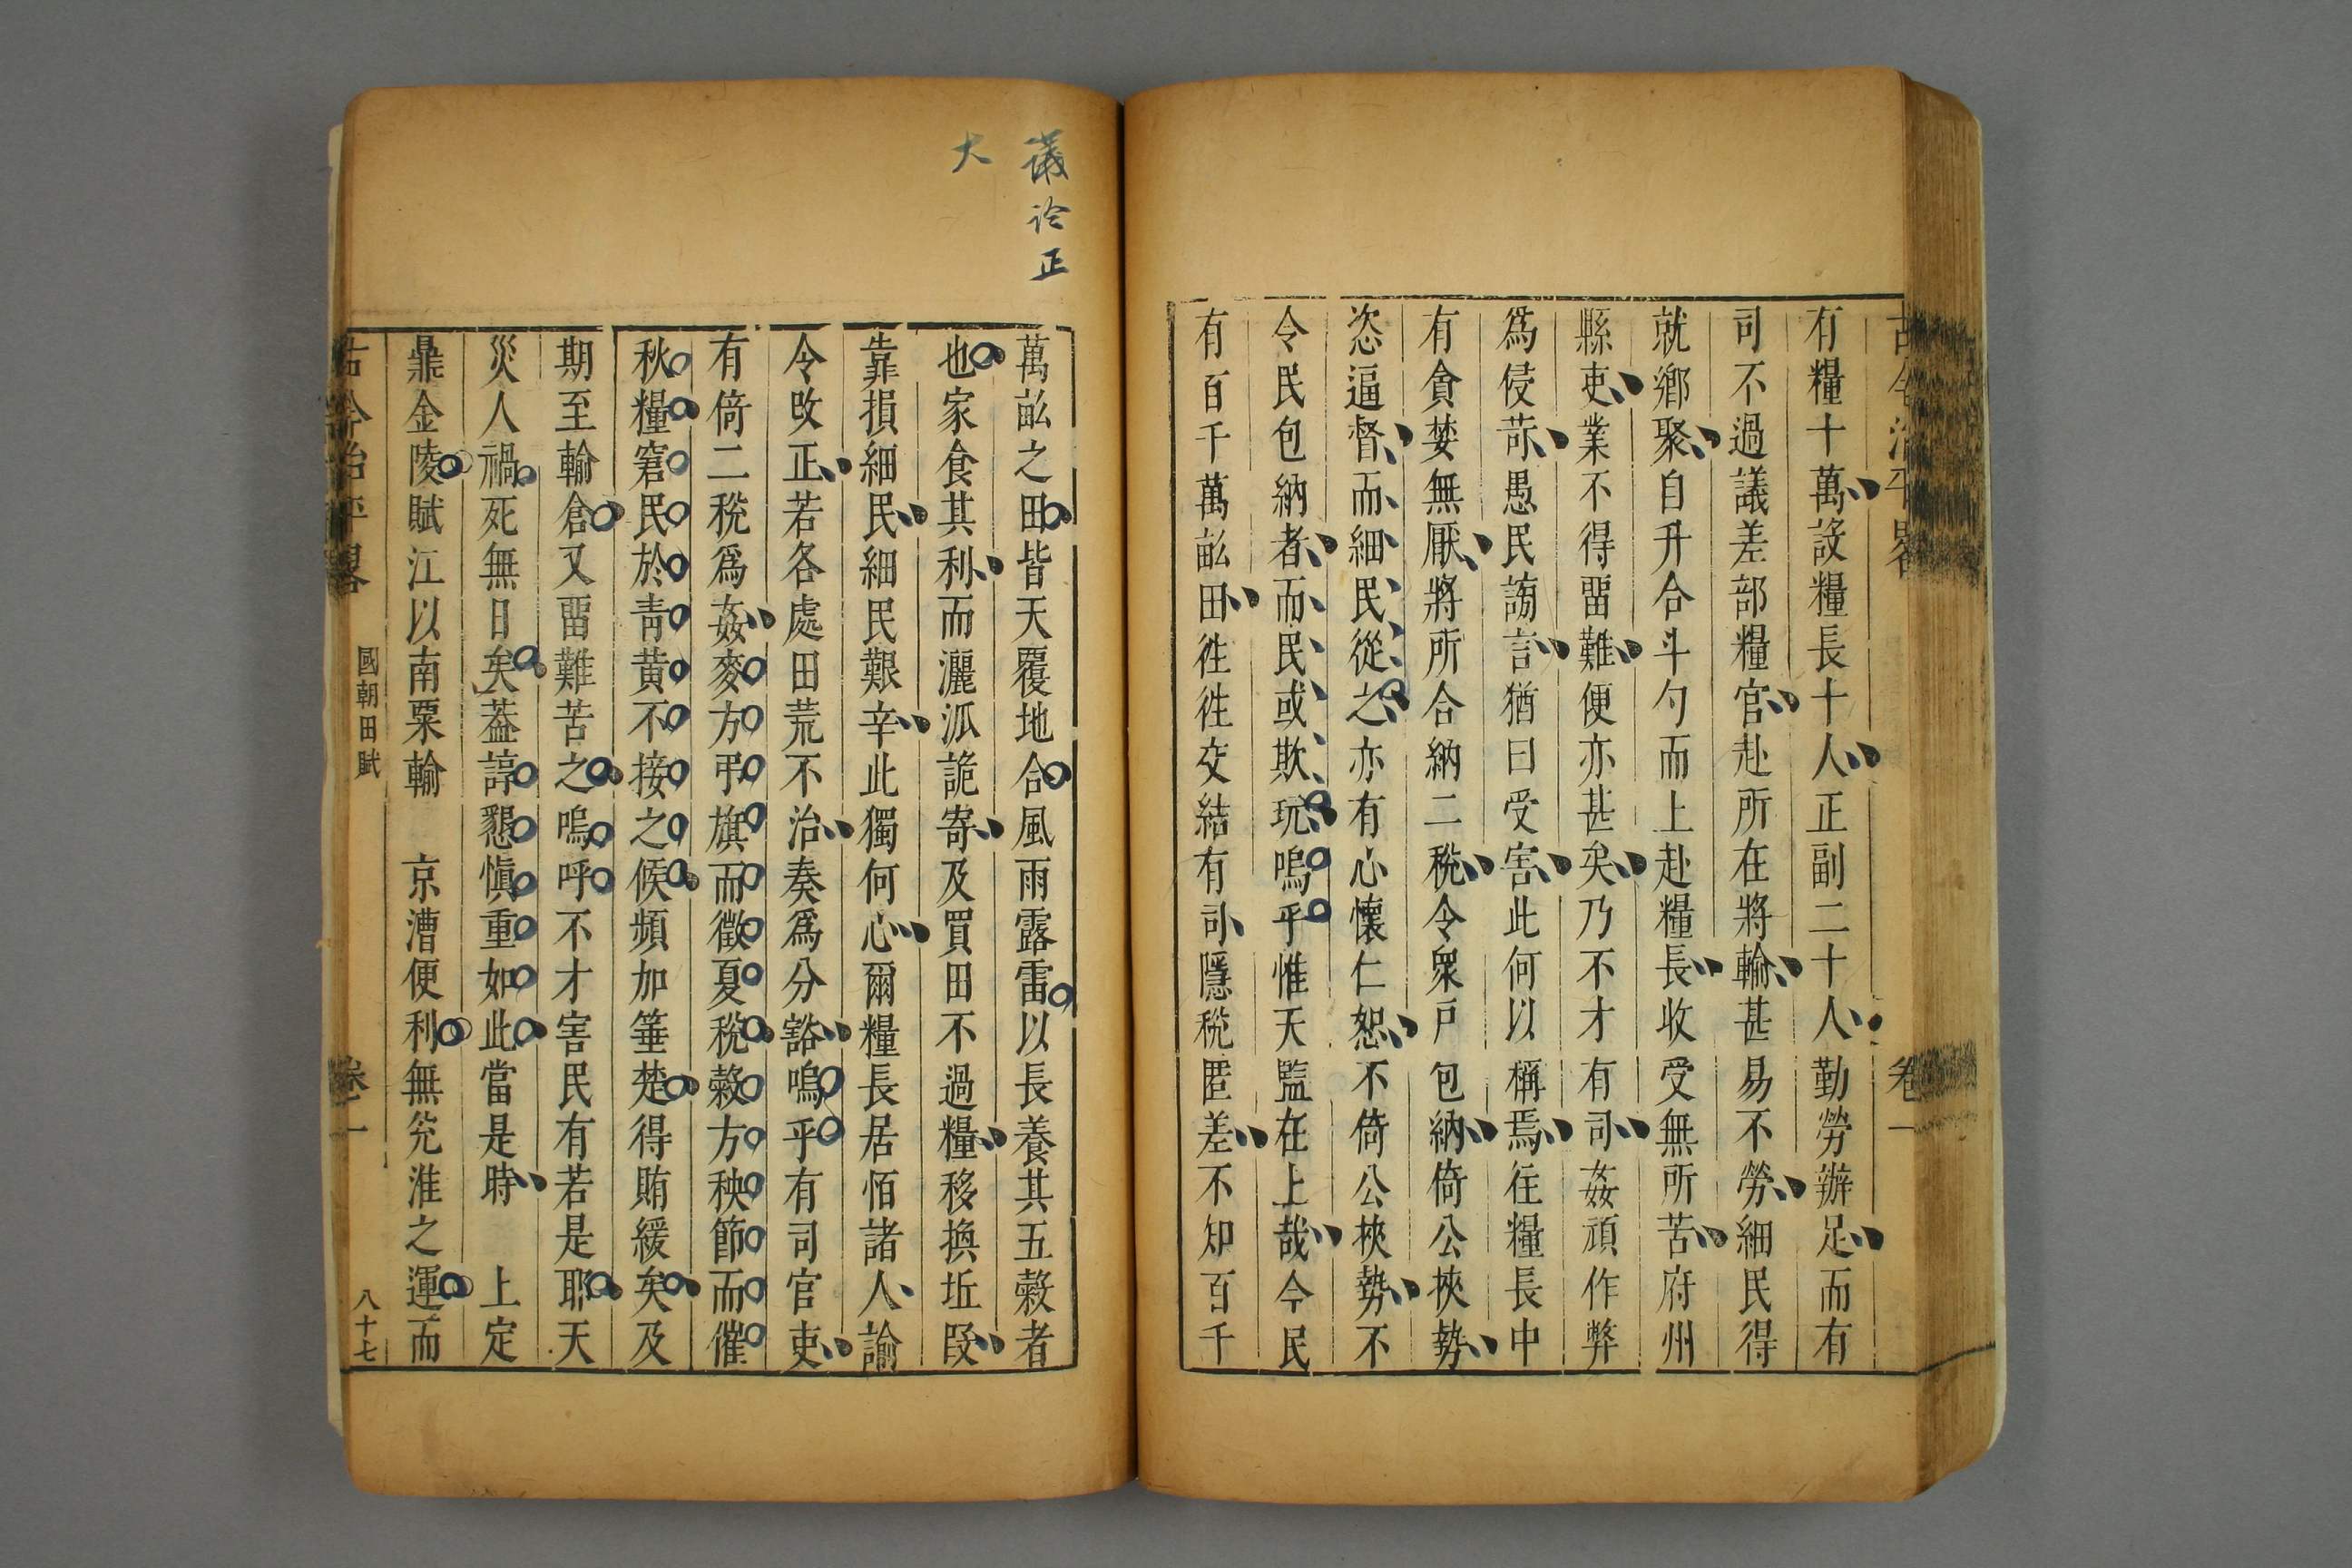 古今治平畧
卷一
有糧十萬設糧長十人正副二十人勤勞辦足而有
司不過議差部糧官赴所在將輸甚易不勞細民得
就鄉聚自升合斗勺而上赴糧長收受無所苦府州
縣吏業不得畱難便亦甚矣乃不才有司姦頑作弊
爲侵苛愚民謗言猶曰受害此何以稱焉往糧長中
有貪婪無厭將所合納二稅令衆戶包納倚公挾勢
恣逼督而細民從之亦有心懷仁恕不倚公挾勢不
令民包納者而民或欺玩嗚乎惟天監在上哉今民
有百千萬畝田徃徃交結有司隱稅匿差不知百千
議論正
大
萬畝之田皆天覆地合風雨露雷以長養其五穀者
也家食其利而灑泒詭寄及買田不過糧移換坵段
靠損細民細民艱辛此獨何心爾糧長居佰諸人諭
令改正若各處田荒不治奏爲分豁嗚乎有司官吏
有倚二稅爲姦麥方弔旗而徵夏稅榖方秧節而催
秋糧窘民於靑黃不接之候頻加箠楚得賄緩矣及
期至輸倉又畱難苦之嗚呼不才害民有若是耶天
災人禍死無日矣葢諄懇愼重如此當是時 上定
鼎金陵賦江以南粟輸 京漕便利無兖淮之運而
古今治平畧
國朝田賦
卷一
八十七